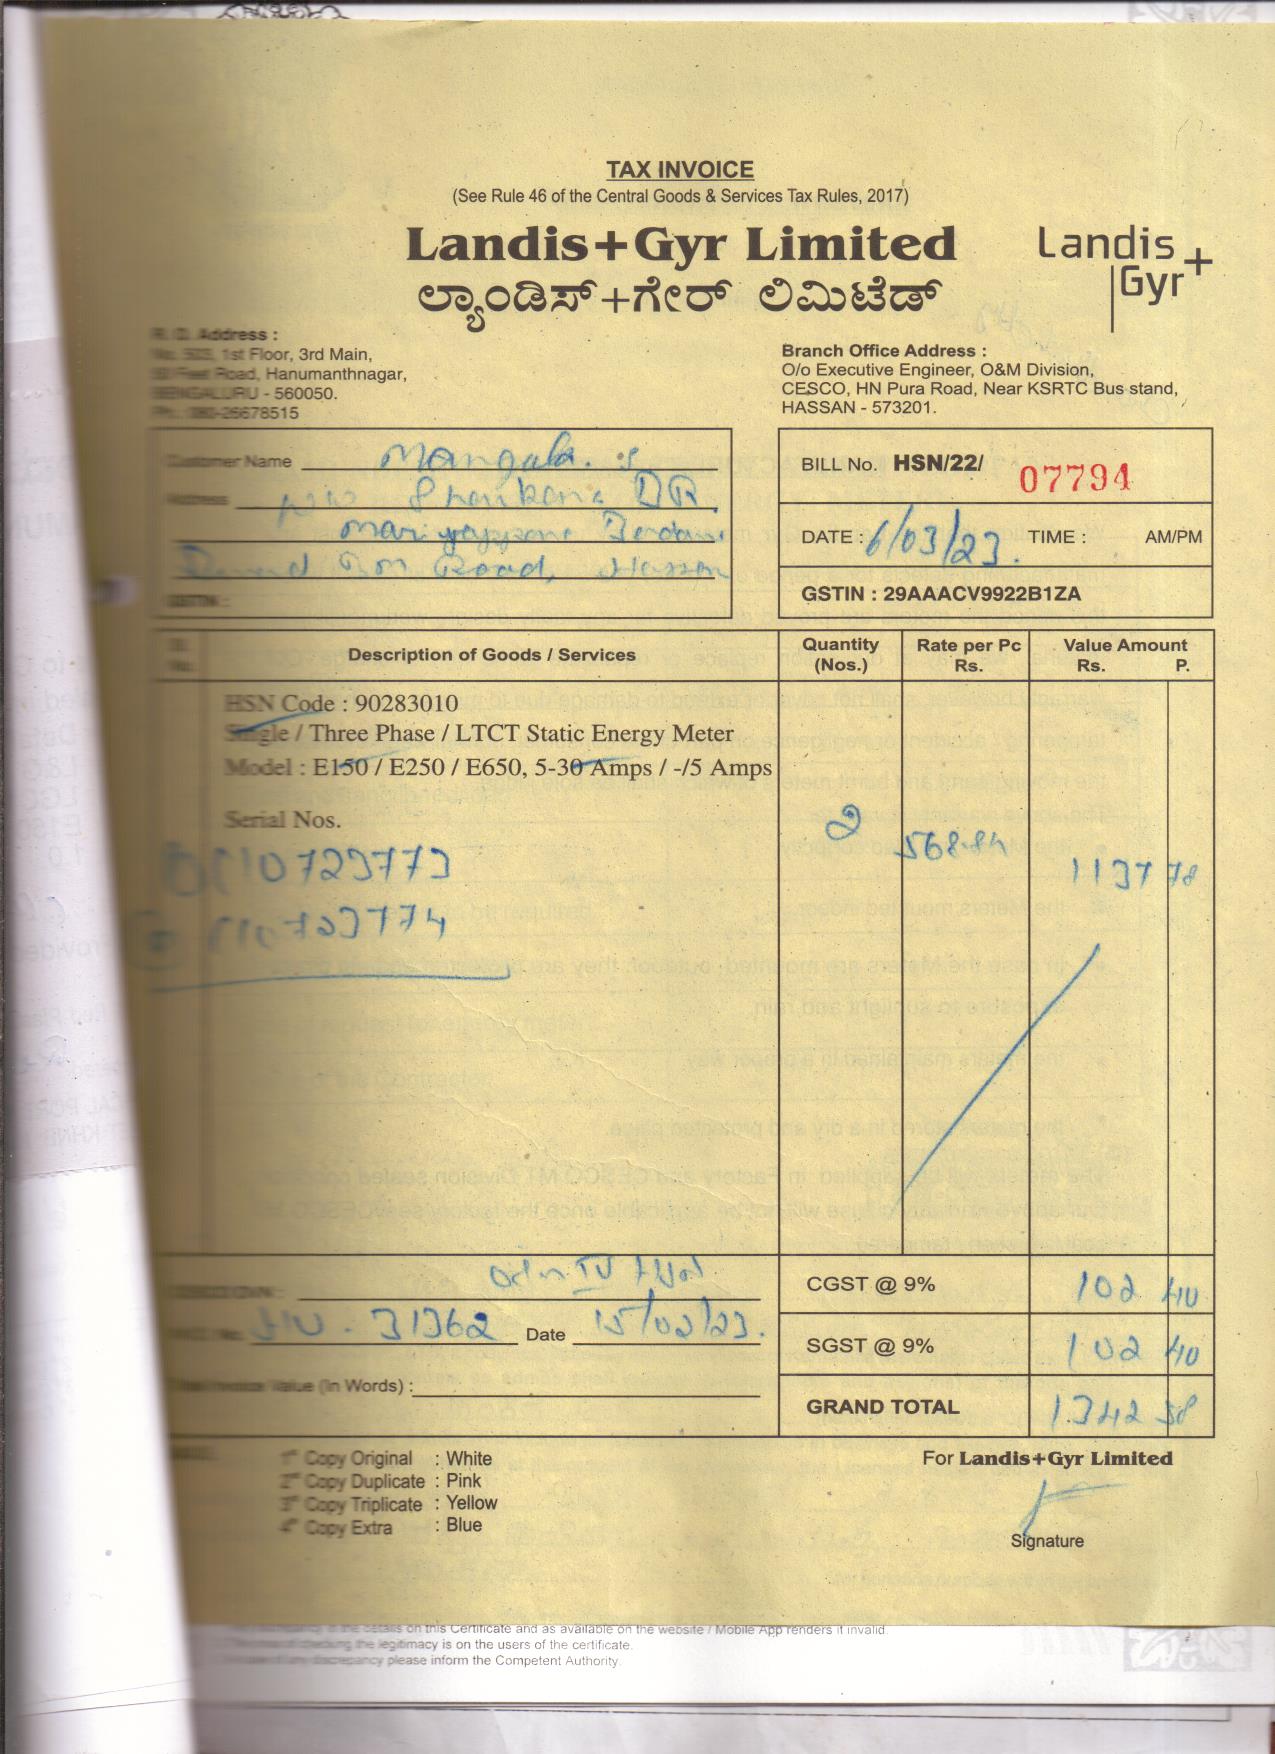 TAX INVOICE
(See Rule 46 of the Central Goods & Services Tax Rules, 2017)
Landis+Gyr Limited
ಲ್ಯಾಂಡಿಸ್+ಗೇರ್ ಲಿಮಿಟೆಡ್
Landis
Gyr+
R. O. Address :
No. 503, 1st Floor, 3rd Main,
50 Feet Road, Hanumanthnagar,
BENGALURU - 560050.
Ph. : 080-26678515
Branch Office Address :
O/o Executive Engineer, O&M Division,
CESCO, HN Pura Road, Near KSRTC Bus stand,
HASSAN - 573201.
Customer Name Mangala. S
Address Shankara DR
Road, Hassan
GSTIN :
BILL No. HSN/22/ 07794
DATE : 6/03/23. TIME : AM/PM
GSTIN : 29AAACV9922B1ZA
Description of Goods / Services Quantity (Nos.) Rate per Pc Rs. Value Amount Rs. P.
HSN Code : 90283010
Single / Three Phase / LTCT Static Energy Meter
Model : E150 / E250 / E650, 5-30 Amps / -/5 Amps
Serial Nos.
2 568.84 1137 78
10723773
10723774
CGST @ 9% 102 40
31362 Date 15/02/23.
SGST @ 9% 102 40
Value (In Words) :
GRAND TOTAL 1342 58
1st Copy Original : White
2nd Copy Duplicate : Pink
3rd Copy Triplicate : Yellow
4th Copy Extra : Blue
For Landis+Gyr Limited
Signature
details on this Certificate and as available on the website / Mobile App renders it invalid.
the legitimacy is on the users of the certificate.
discrepancy please inform the Competent Authority.